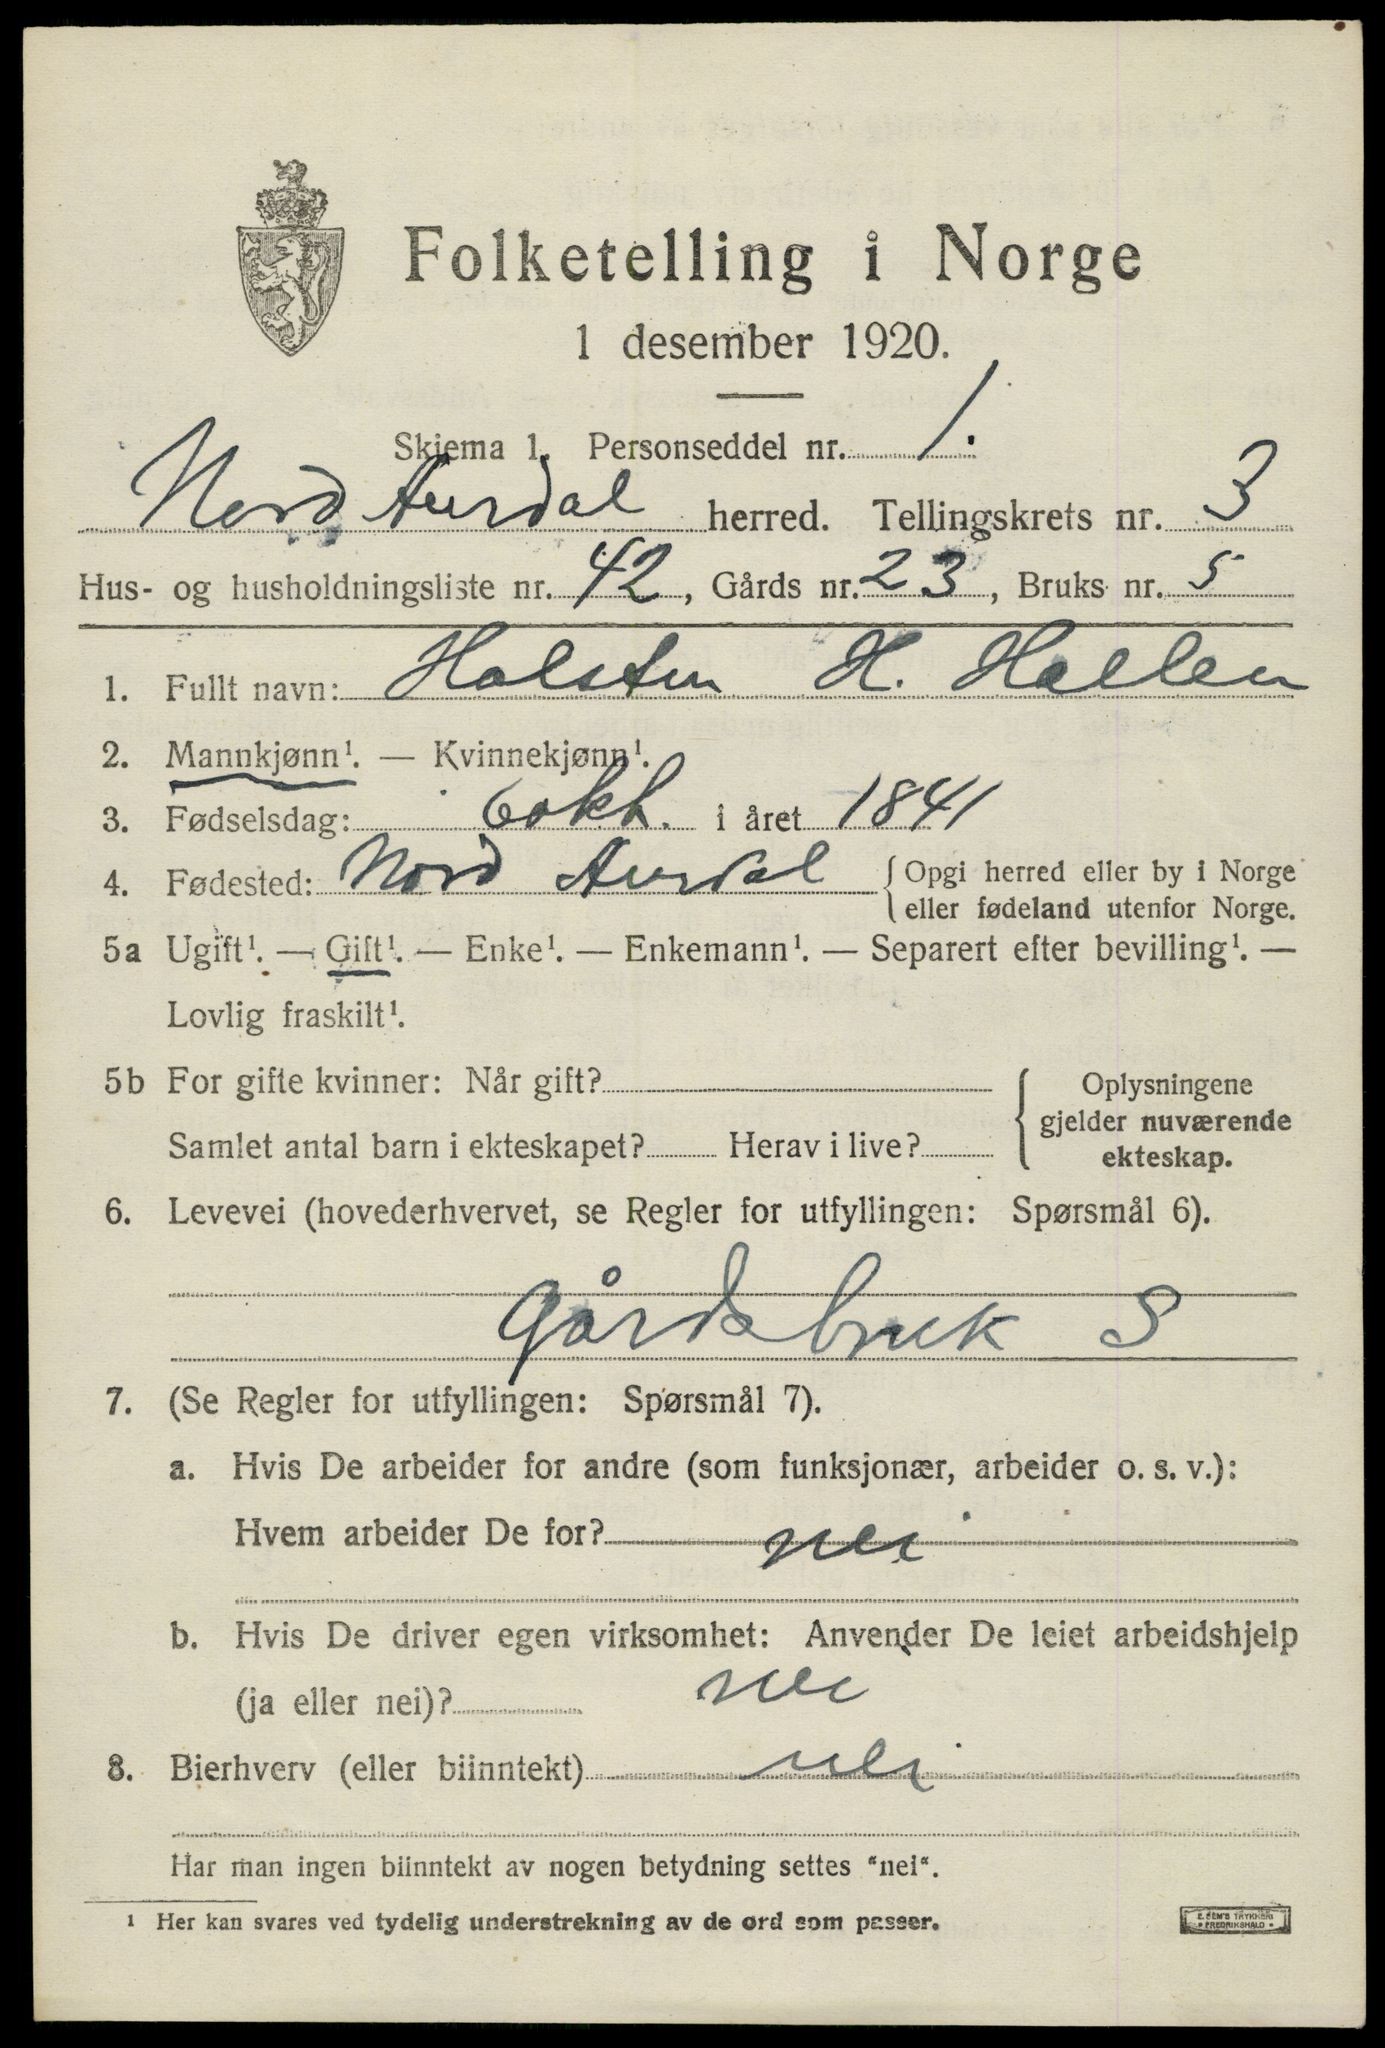 Folketelling i Norge
1 desember 1920.
Skjema 1. Personseddel nr. 1.
Nord Aurdal herred. Tellingskrets nr. 3
Hus- og husholdningsliste nr. 42, Gårds nr. 23, Bruks nr. 5
1. Fullt navn: Halsten H. Hallen
2. Mannkjønn¹. — Kvinnekjønn¹.
3. Fødselsdag: 6 okt. i året 1841
4. Fødested: Nord Aurdal {Opgi herred eller by i Norge
eller fødeland utenfor Norge.
5a Ugift¹. — Gift¹. — Enke¹. — Enkemann¹. — Separert efter bevilling¹. —
Lovlig fraskilt¹.
5b For gifte kvinner: Når gift?
Samlet antal barn i ekteskapet? Herav i live?
{Oplysningene
gjelder nuværende
ekteskap.
6. Levevei (hovederhvervet, se Regler for utfyllingen: Spørsmål 6).
Gårdsbruk S
7. (Se Regler for utfyllingen: Spørsmål 7).
a. Hvis De arbeider for andre (som funksjonær, arbeider o. s. v.):
Hvem arbeider De for? nei
b. Hvis De driver egen virksomhet: Anvender De leiet arbeidshjelp
(ja eller nei)? nei
8. Bierhverv (eller biinntekt) nei
Har man ingen biinntekt av nogen betydning settes "nei".
¹ Her kan svares ved tydelig understrekning av de ord som passer.
E. SEM'S TRYKKERI
• FREDRIKSHALD •